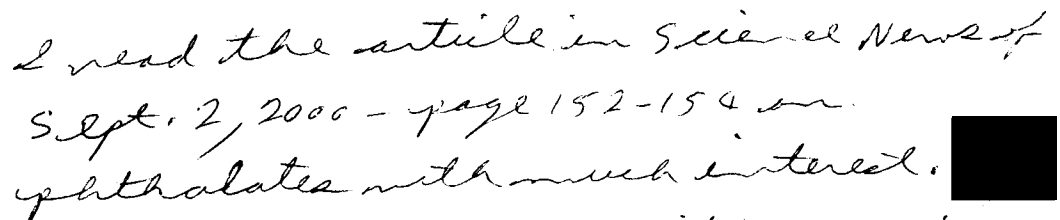 I read the article in Science News of
Sept. 2, 2000 - page 152-154 on
phthalates with much interest.